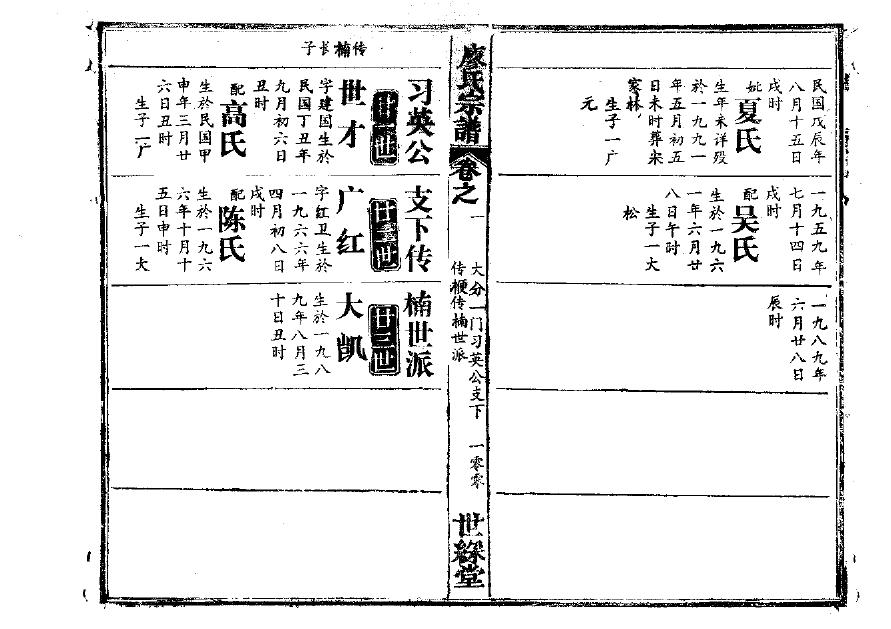 民国戊辰年
八月十五日
戌时
妣夏氏
生年未详殁
於一九九一
年五月初五
日未时葬
家林
生子一广
元
一九五九年
七月十四日
戌时
配吴氏
生於一九六
一年六月廿
八日午时
生子一大
松
一九八九年
六月廿八日
辰时
廖氏宗譜
卷之一
大分一门习英公支下
传梗传楠世派
一零零
世綵堂
习英公支下传楠世派
传楠长子
廿一世
世才
字建国生於
民国丁丑年
九月初六日
丑时
配高氏
生於民国甲
申年三月廿
六日丑时
生子一广
廿二世
广红
字红卫生於
一九六六年
四月初八日
戌时
配陈氏
生於一九六
六年十月十
五日申时
生子一大
廿三世
大凯
生於一九八
九年八月三
十日丑时